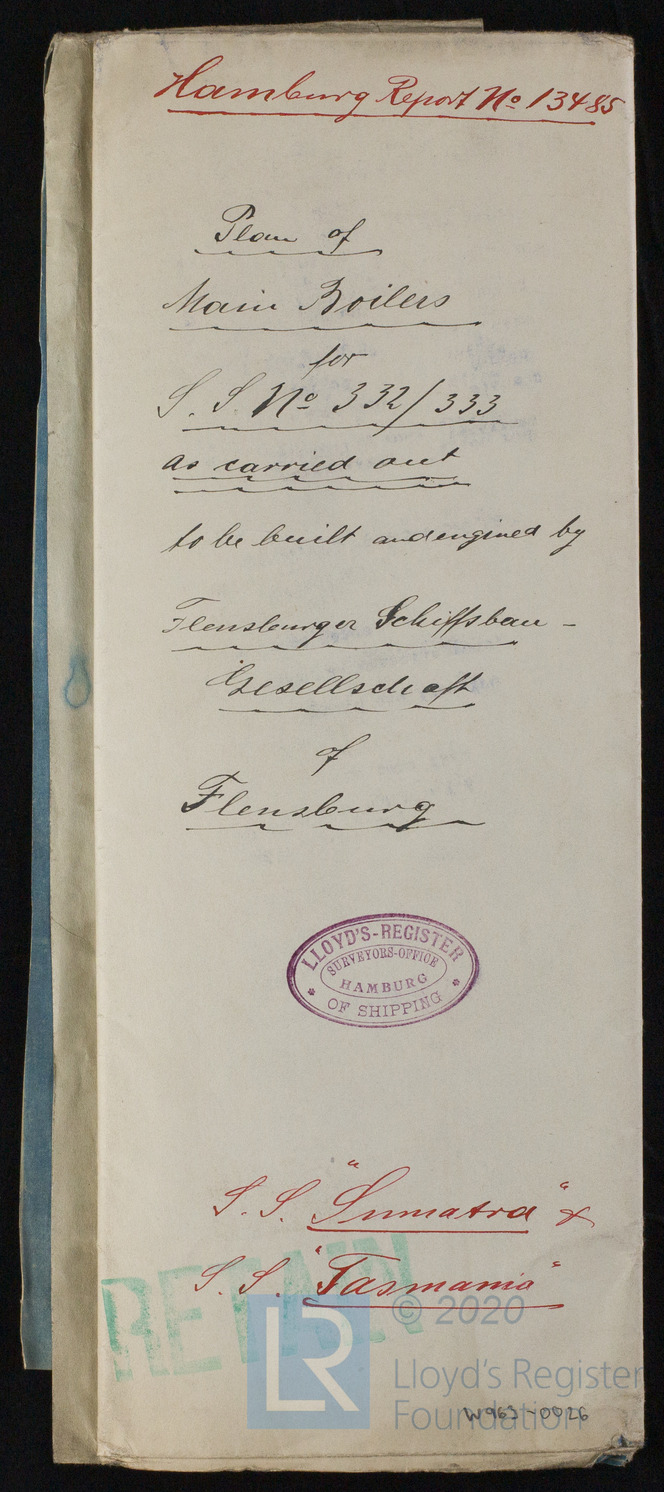 Hamburg Report No 13485
Plan of
Main Boilers
for
S. S. No 332/333
as carried out
to be built and engined by
Flensburger Schiffsbau-
Gesellschaft
of
Flensburg
LLOYD'S-REGISTER
SURVEYORS-OFFICE
HAMBURG
OF SHIPPING
S. S. "Sumatra" &
S. S. "Tasmania"
RETAIN
© 2020
LR
Lloyd's Register
Foundation
W963-0026